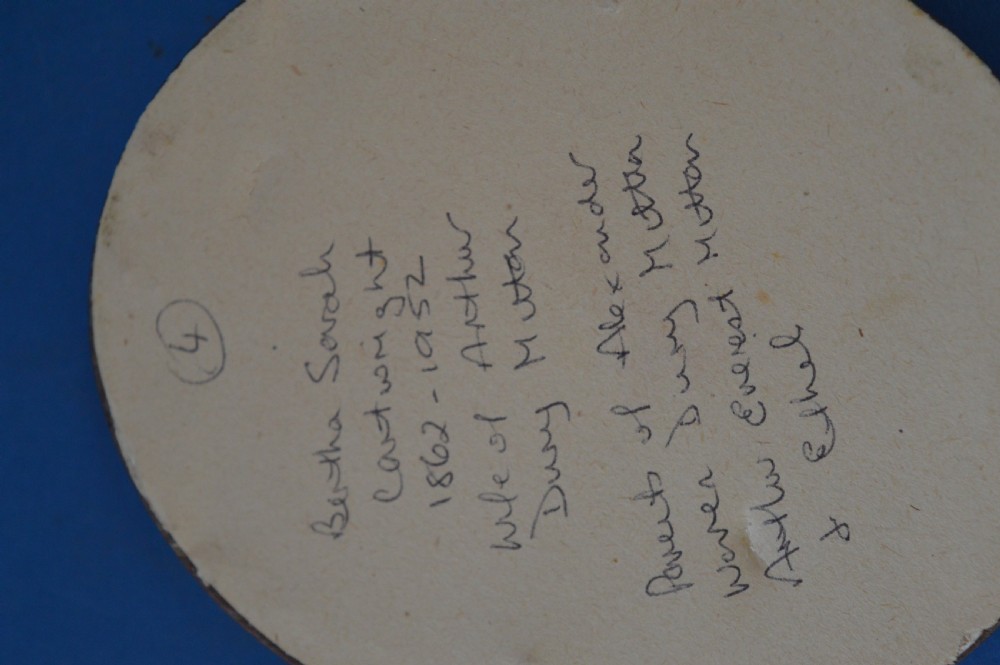 4
Bertha Sarah
Cartwright
1862-1952
Wife of Arthur
Dury Mutton
Parents of Alexander
Waren Dury Mutton
Arthur Everest Mutton
& Ethel